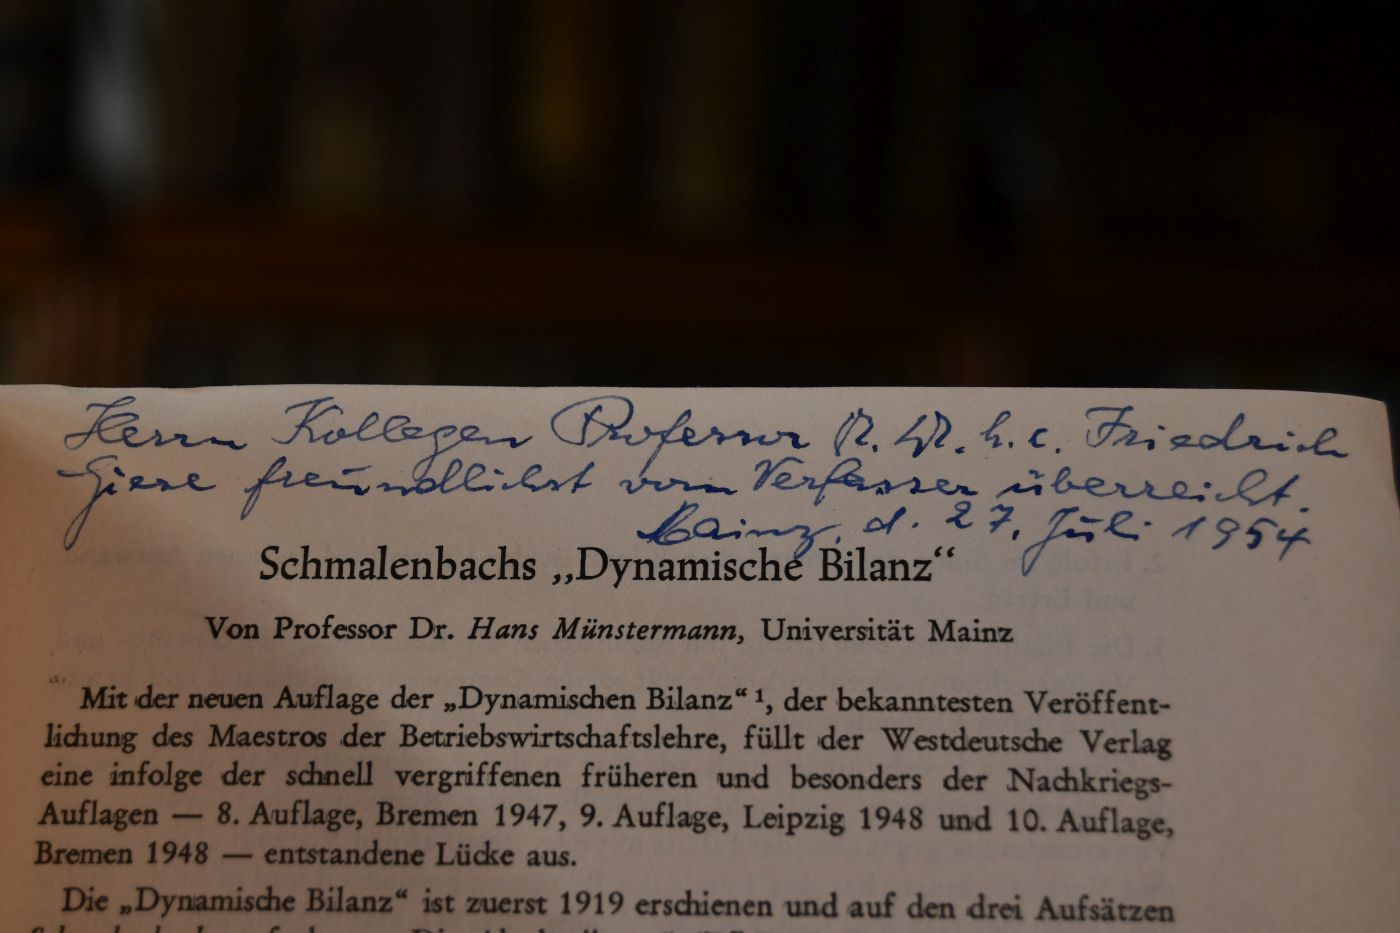 Herrn Kollegen Professor Dr. Dr. h. c. Friedrich
Giese freundlichst vom Verfasser überreicht.
Mainz, d. 27. Juli 1954
Schmalenbachs „Dynamische Bilanz“
Von Professor Dr. Hans Münstermann, Universität Mainz
Mit der neuen Auflage der „Dynamischen Bilanz“ ¹, der bekanntesten Veröffent-
lichung des Maestros der Betriebswirtschaftslehre, füllt der Westdeutsche Verlag
eine infolge der schnell vergriffenen früheren und besonders der Nachkriegs-
Auflagen — 8. Auflage, Bremen 1947, 9. Auflage, Leipzig 1948 und 10. Auflage,
Bremen 1948 — entstandene Lücke aus.
Die „Dynamische Bilanz“ ist zuerst 1919 erschienen und auf den drei Aufsätzen